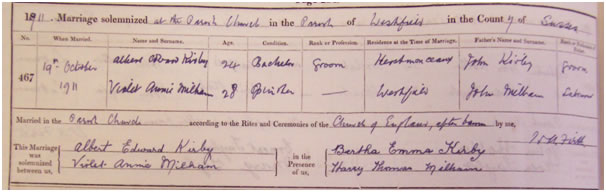 1911. Marriage solemnized at the Parish Church in the Parish of Westfield in the County of Sussex
No. When Married. Name and Surname. Age. Condition. Rank or Profession. Residence at the Time of Marriage. Father's Name and Surname. Rank or Profession of Father.
467 19th October 1911 Albert Edward Kirby 24 Bachelor Groom Herstmonceaux John Kirby Groom
Violet Annie Milham 28 Spinster — Westfield John Milham Labourer
Married in the Parish Church according to the Rites and Ceremonies of the Church of England, after banns by me,
This Marriage was solemnized between us, Albert Edward Kirby in the Presence of us, Bertha Emma Kirby
Violet Annie Milham Harry Thomas Milham